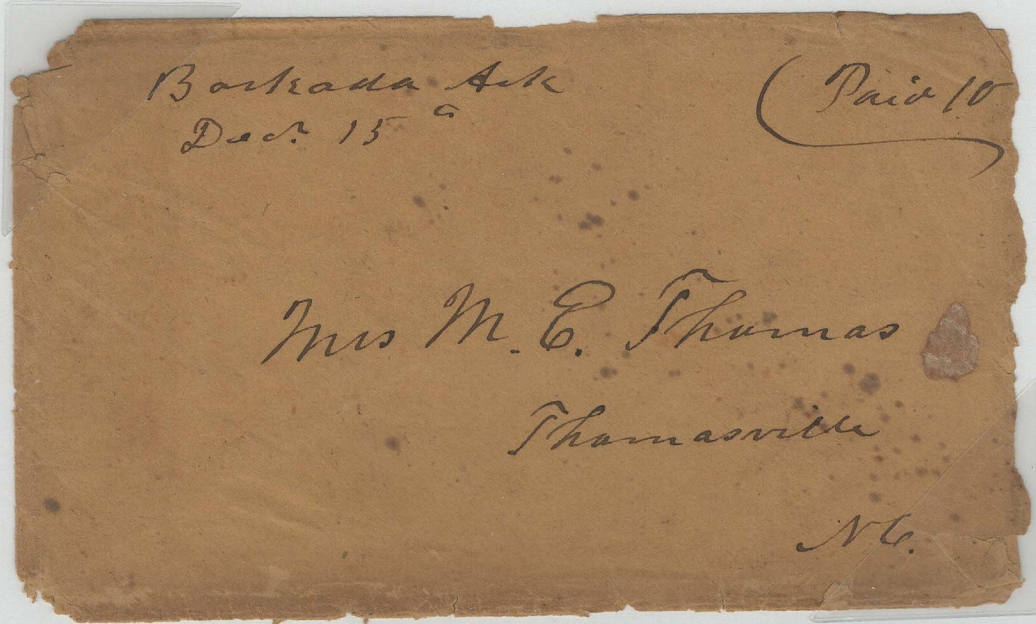 Barkada Ark
Decr. 15
(Paid 10
Mrs M. E. Thomas
Thomasville
N C.